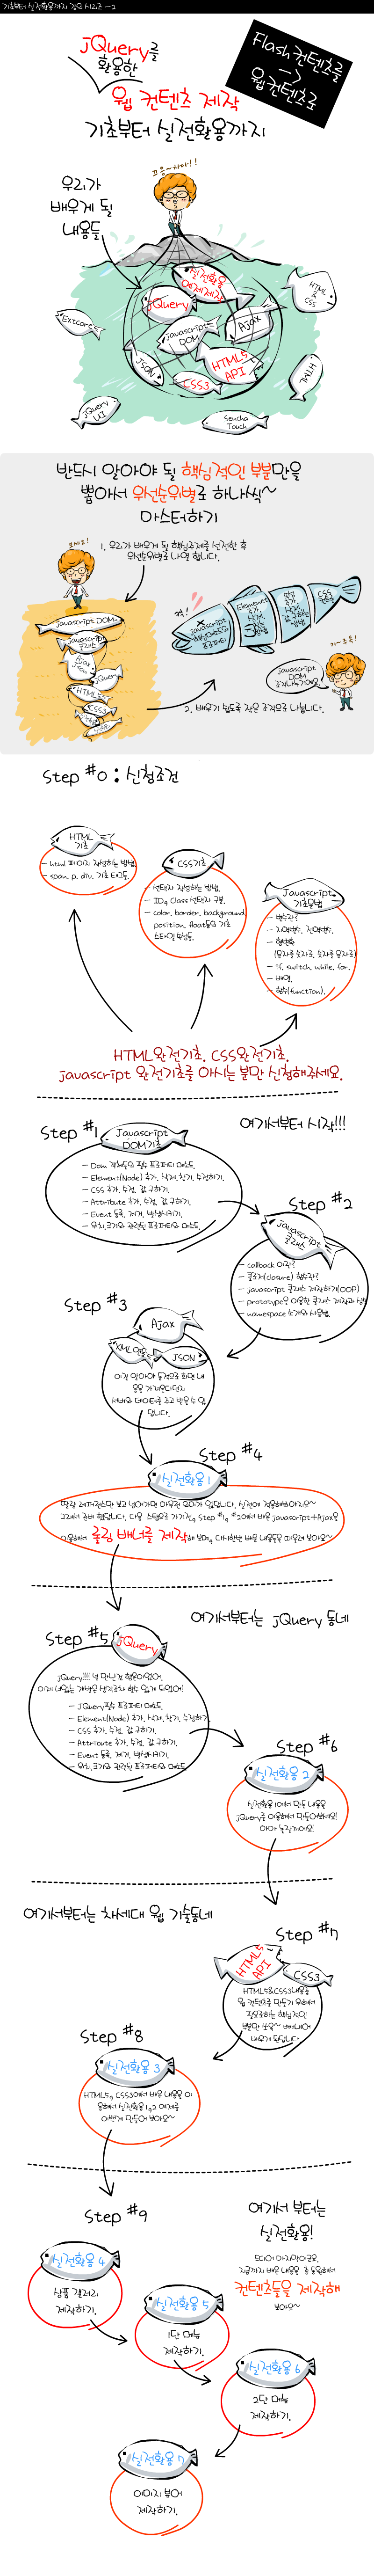 기초부터 실전활용까지 강의 시리즈 -2
jQuery를
활용한
웹 컨텐츠 제작
기초부터 실전활용까지
Flash 컨텐츠를
-->
웹컨텐츠로
우리가
배우게 될
내용들
실전활용
예제제작
HTML
&
CSS
jQuery
Extcore
javascript
DOM
Ajax
JSON
HTML5
API
CSS3
HTML
jQuery
UI
Sencha
Touch
반드시 알아야 될 핵심적인 부분만을
뽑아서 우선순위별로 하나씩~
마스터하기
1. 우리가 배우게 될 핵심주제를 선정한 후
우선순위별로 나열 합니다.
javascript DOM
javascript
클래스
Ajax
JSON
jQuery
HTML5
CSS3
javascript
Element
CSS
javascript
DOM
2. 배우기 쉽도록 작은 조각으로 나눕니다.
Step #0 : 신청조건
HTML
기초
- html 페이지 작성하는 방법.
- span, p, div, 기초 태그들.
CSS기초
- 선택자 작성하는 방법.
- ID와 Class 선택자 구분.
- color, border, background,
position, float등의 기초
스타일 속성들.
Javascript
기초문법
- 변수란?
- 지역변수, 전역변수.
- 형변환
(문자를 숫자로, 숫자를 문자로)
- if, switch, while, for.
- 배열.
- 함수(function).
HTML완전기초, CSS완전기초,
javascript 완전기초를 아시는 분만 신청해주세요.
Step #1
여기서부터 시작!!!
Javascript
DOM기초
- Dom 객체들의 필수 프로퍼티 메소드.
- Element(Node) 추가, 삭제, 찾기, 수정하기.
- CSS 추가, 수정, 값 구하기.
- Attribute 추가, 수정, 값 구하기.
- Event 등록, 제거, 발생시키기.
- 위치,크기와 관련된 프로퍼티와 메소드.
Step #2
javascript
클래스
- callback 이란?
- 클로저(closure) 함수란?
- javascript 클래스 제작하기(OOP)
- prototype을 이용한 클래스 제작과 상속
- namespace 소개와 사용법.
Step #3
Ajax
XML연동
JSON
이걸 알아야 동적으로 화면 내
용을 가져온다던지
서버와 데이터를 주고 받을 수 있
답니다.
Step #4
실전활용 1
달랑 레퍼런스만 보고 넘어가면 아무런 의미가 없답니다. 실전에 적용해봐야지요~
그래서 준비 했답니다. 다음 스텝으로 가기전, Step #1, #2에서 배운 javascript+Ajax를
이용해서 롤링 배너를 제작해 보며, 다시한번 배운 내용들을 떠올려 보아요~
여기서부터는 jQuery 동네
Step #5
jQuery
jQuery!!!! 널 만난건 행운이었어,
이제 너없는 개발은 생각조차 할수 없게 되었어!
- JQuery필수 프로퍼티 메소드.
- Element(Node) 추가, 삭제, 찾기, 수정하기.
- CSS 추가, 수정, 값 구하기.
- Attribute 추가, 수정, 값 구하기.
- Event 등록, 제거, 발생시키기.
- 위치,크기와 관련된 프로퍼티와 메소드.
Step #6
실전활용 2
실전활용1에서 만든 내용을
jQuery를 이용해서 만들어봐요!
아마 놀랄꺼에요!
여기서부터는 차세대 웹 기술동네
Step #7
HTML5
API
CSS3
HTML5&CSS3내용중
웹 컨텐츠를 만들기 위해서
필요로하는 핵심적인
부분만 쏘옥~ 빼내어
배우게 된답니다.
Step #8
실전활용 3
HTML5, CSS3에서 배운 내용을 이
용해서 실전활용 1,2 예제를
이쁘게 만들어 보아요~
Step #9
여기서 부터는
실전활용!
드디어 마지막이군요,
지금까지 배운 내용을 총 동원해서
컨텐츠들을 제작해
보아요~
실전활용 4
상품 갤러리
제작하기.
실전활용 5
1단 메뉴
제작하기.
실전활용 6
2단 메뉴
제작하기.
실전활용 7
이미지 뷰어
제작하기.